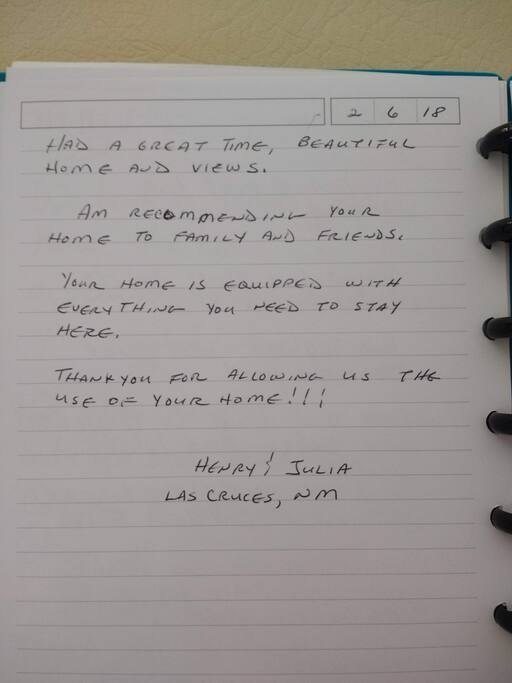 2 6 18
HAD A GREAT TIME, BEAUTIFUL
HOME AND VIEWS.
AM RECOMMENDING YOUR
HOME TO FAMILY AND FRIENDS.
YOUR HOME IS EQUIPPED WITH
EVERYTHING YOU NEED TO STAY
HERE.
THANKYOU FOR ALLOWING US THE
USE OF YOUR HOME!!!
HENRY & JULIA
LAS CRUCES, NM